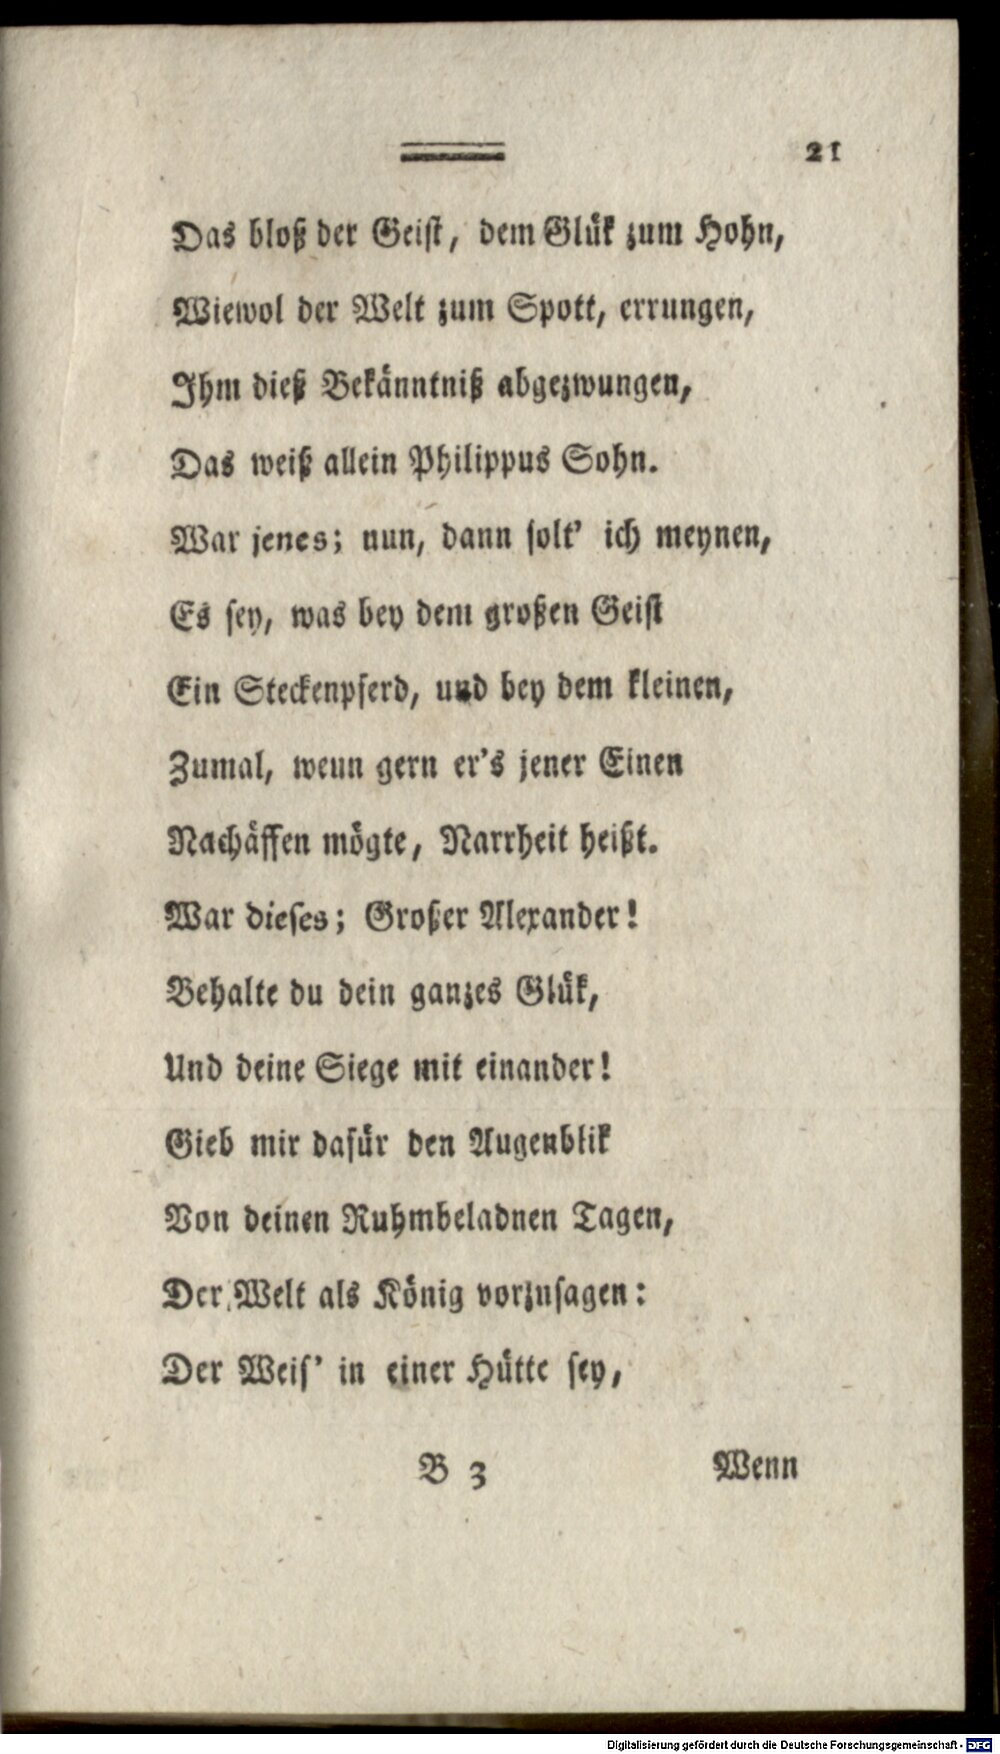 21
Das bloß der Geist, dem Glük zum Hohn,
Wiewol der Welt zum Spott, errungen,
Ihm dieß Bekänntniß abgezwungen,
Das weiß allein Philippus Sohn.
War jenes; nun, dann solt' ich meynen,
Es sey, was bey dem großen Geist
Ein Steckenpferd, und bey dem kleinen,
Zumal, wenn gern er's jener Einen
Nachäffen mögte, Narrheit heißt.
War dieses; Großer Alexander!
Behalte du dein ganzes Glük,
Und deine Siege mit einander!
Gieb mir dafür den Augenblik
Von deinen Ruhmbeladnen Tagen,
Der Welt als König vorzusagen:
Der Weis' in einer Hütte sey,
B 3 Wenn
Digitalisierung gefördert durch die Deutsche Forschungsgemeinschaft - DFG